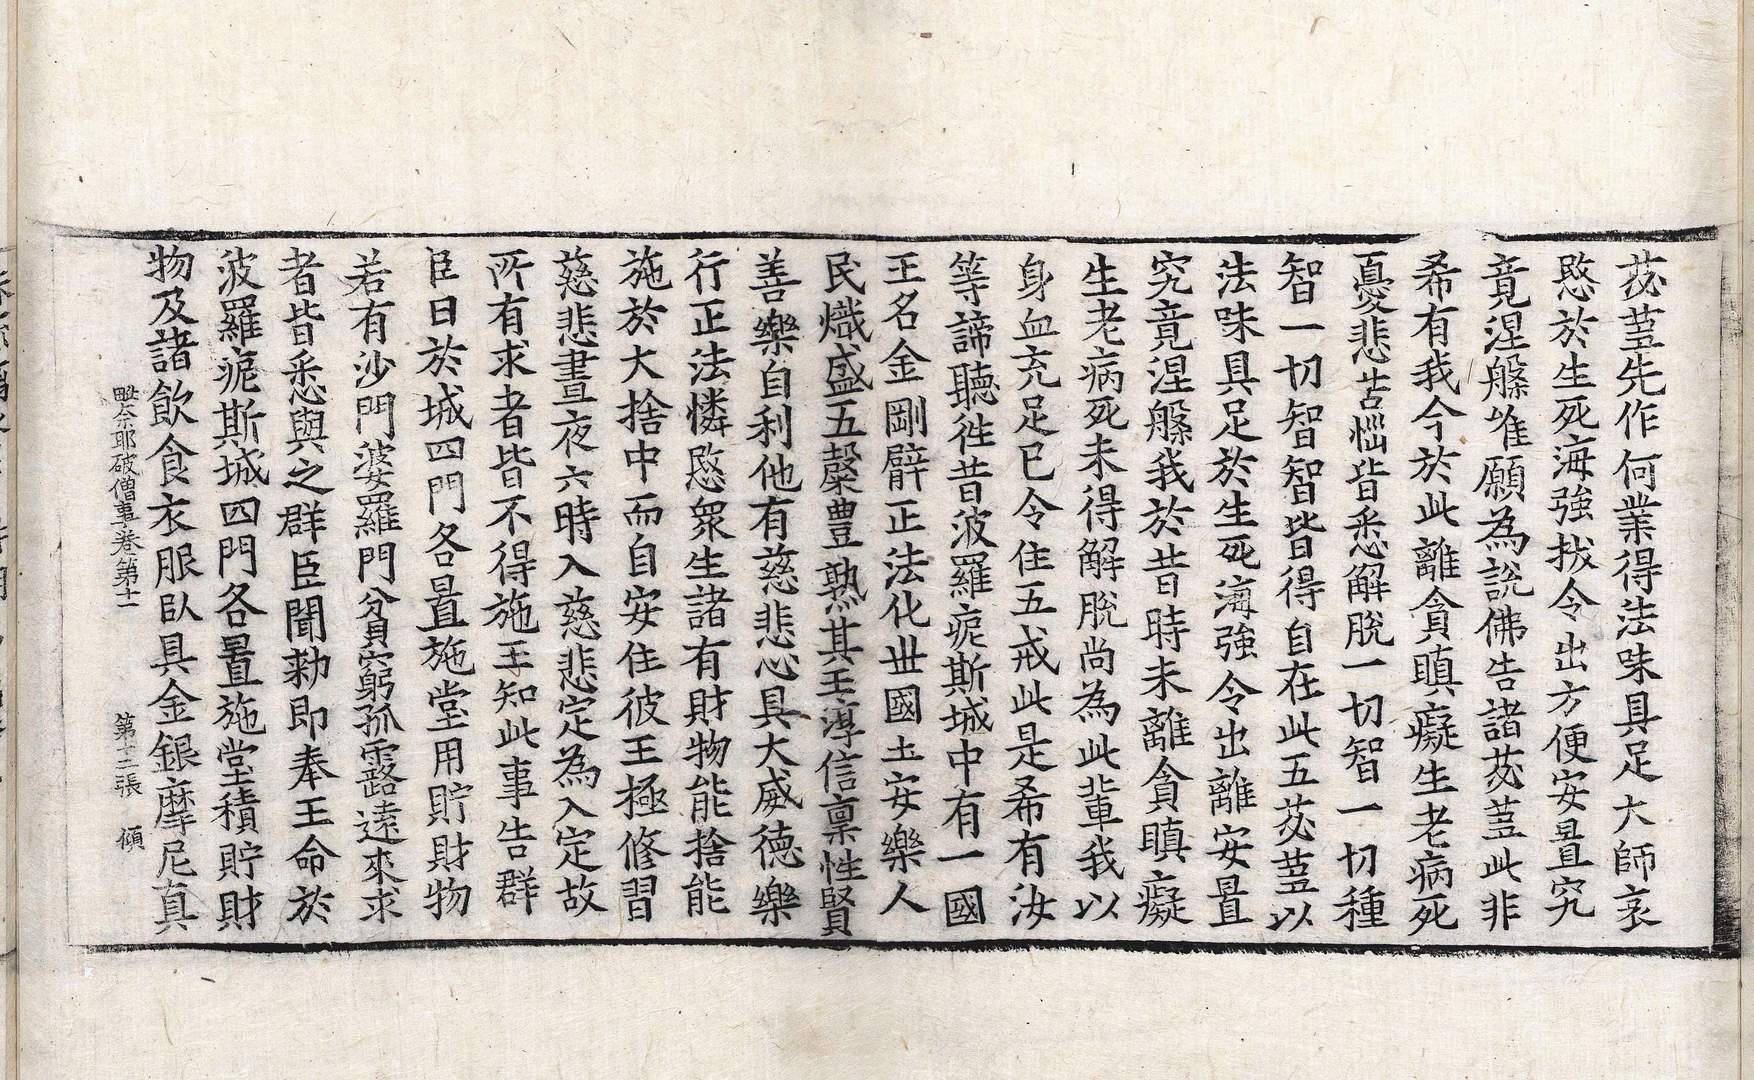 苾蒭先作何業得法味具足大師哀
愍於生死海強拔令出方便安置究
竟涅槃唯願為說佛告諸苾蒭此非
希有我今於此離貪瞋癡生老病死
憂悲苦惱皆悉解脫一切智一切種
智一切智智皆得自在此五苾蒭以
法味具足於生死海強令出離安置
究竟涅槃我於昔時未離貪瞋癡
生老病死未得解脫尚為此輩我以
身血充足已令住五戒此是希有汝
等諦聽往昔波羅痆斯城中有一國
王名金剛臂正法化世國土安樂人
民熾盛五糓豊熟其王淳信稟性賢
善樂自利他有慈悲心具大威德樂
行正法憐愍眾生諸有財物能捨能
施於大捨中而自安住彼王極修習
慈悲晝夜六時入慈悲定為入定故
所有求者皆不得施王知此事告群
臣曰於城四門各置施堂用貯財物
若有沙門婆羅門貧窮孤露遠來求
者皆悉與之群臣聞勑即奉王命於
波羅痆斯城四門各置施堂積貯財
物及諸飲食衣服臥具金銀摩尼真
毗奈耶破僧事卷第十一 第十三張 傾